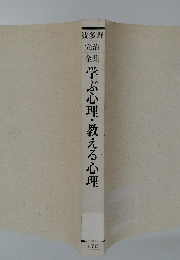 波多野
完治
全集
学ぶ心理・教える心理
小学館